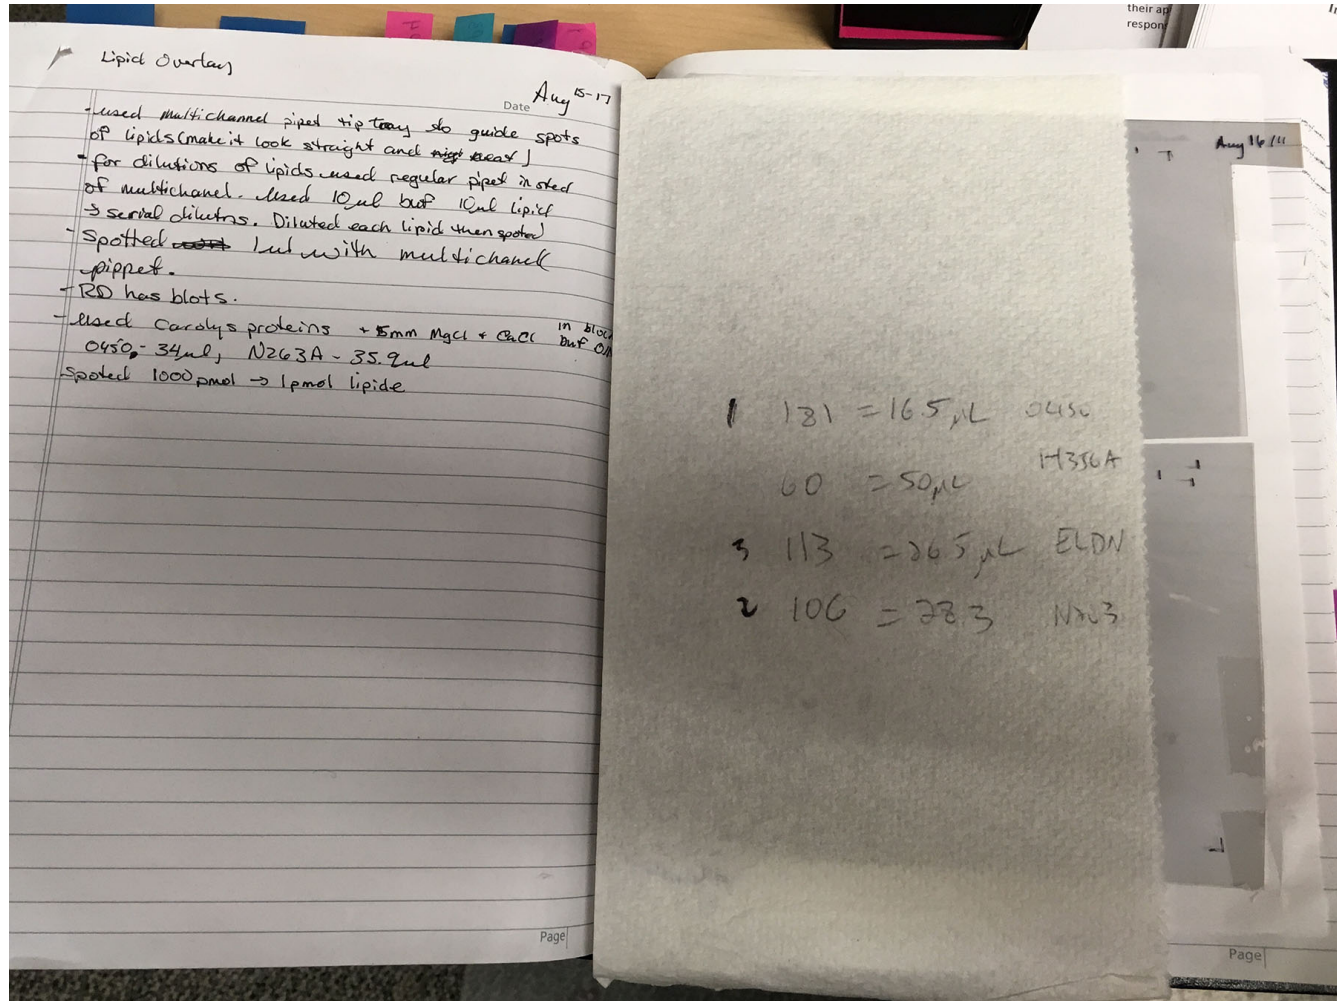 Lipid Overlay
Date Aug 15-17
- used multichannel pipet tip tray to guide spots
of lipids (make it look straight and neat)
- for dilutions of lipids used regular pipet insted
of multichanel. Used 10ul buf 10ul lipid
→ serial dilutns. Diluted each lipid then spoted
- Spotted 1ul with multichanel
pippet.
- RD has blots.
- Used Carolys proteins + 5mm MgCl + CaCl in bloc
buf O/N
0450 - 34ul, N263A - 35.9ul
Spoted 1000pmol → 1pmol lipide
Page
1 181 = 16.5 µL 0450
H356A
60 = 50µL
3 113 = 26.5 µL ELDN
2 106 = 28.3 N263
their ap
respon
Aug 16/11
Page